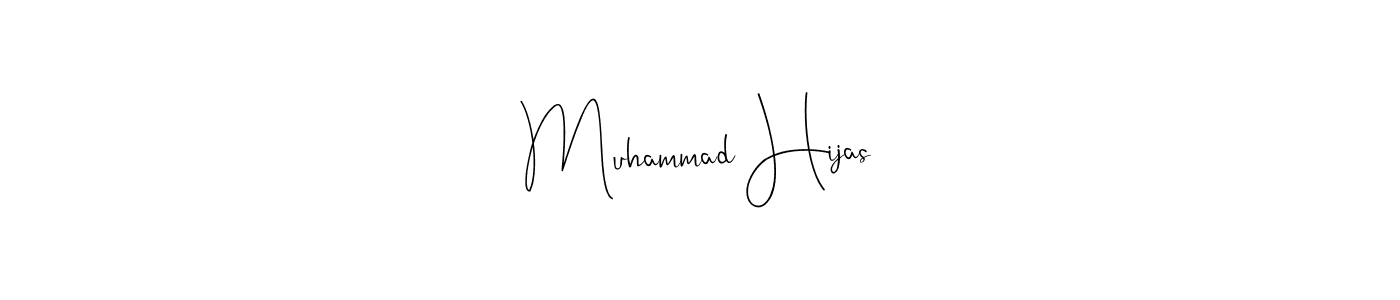 Muhammad Hijas